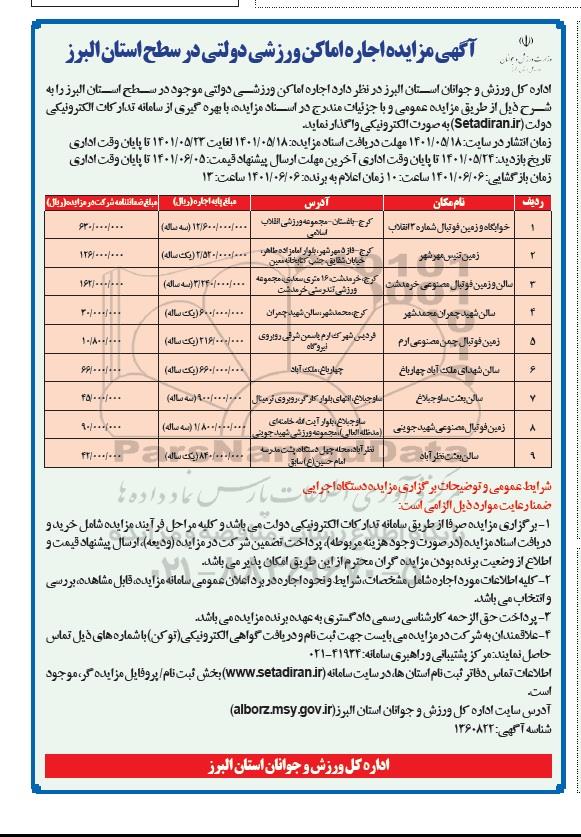 آگهی مزایده اجاره اماکن ورزشی دولتی در سطح استان البرز
وزارت ورزش و جوانان
اداره کل ورزش و جوانان استان البرز در نظر دارد اجاره اماکن ورزشی دولتی موجود در سطح استان البرز را به
شرح ذیل از طریق مزایده عمومی و با جزئیات مندرج در اسناد مزایده، با بهره گیری از سامانه تدارکات الکترونیکی
دولت (Setadiran.ir) به صورت الکترونیکی واگذار نماید.
زمان انتشار در سایت: ۱۴۰۱/۰۵/۱۸ مهلت دریافت اسناد مزایده: ۱۴۰۱/۰۵/۱۸ لغایت ۱۴۰۱/۰۵/۲۳ تا پایان وقت اداری
تاریخ بازدید: ۱۴۰۱/۰۵/۲۴ تا پایان وقت اداری آخرین مهلت ارسال پیشنهاد قیمت: ۱۴۰۱/۰۶/۰۵ تا پایان وقت اداری
زمان بازگشایی: ۱۴۰۱/۰۶/۰۶ ساعت: ۱۰ زمان اعلام به برنده: ۱۴۰۱/۰۶/۰۶ ساعت: ۱۳
ردیف نام مکان آدرس مبلغ پایه اجاره (ریال) مبلغ ضمانتنامه شرکت در مزایده (ریال)
۱ خوابگاه و زمین فوتبال شماره ۳ انقلاب کرج-باغستان-مجموعه ورزشی انقلاب اسلامی ۱۲/۶۰۰/۰۰۰/۰۰۰ (سه ساله) ۶۳۰/۰۰۰/۰۰۰
۲ زمین تنیس مهرشهر کرج-فاز ۵ مهرشهر، بلوار امامزاده طاهر، خیابان شقایق، جنب کتابخانه معین ۲/۵۲۰/۰۰۰/۰۰۰ (یک ساله) ۱۲۶/۰۰۰/۰۰۰
۳ سالن و زمین فوتبال مصنوعی خرمدشت کرج، خرمدشت، ۱۶ متری سعدی، مجموعه ورزشی تندرستی خرمدشت ۳/۲۴۰/۰۰۰/۰۰۰ (سه ساله) ۱۶۲/۰۰۰/۰۰۰
۴ سالن شهید چمران محمدشهر کرج، محمدشهر، سالن شهید چمران ۶۰۰/۰۰۰/۰۰۰ (یک ساله) ۳۰/۰۰۰/۰۰۰
۵ زمین فوتبال چمن مصنوعی ارم فردیس شهرک ارم یاسمن شرقی روبروی نیروگاه ۲۱۶/۰۰۰/۰۰۰ (یک ساله) ۱۰/۸۰۰/۰۰۰
۶ سالن شهدای ملک آباد چهارباغ چهارباغ، ملک آباد ۶۶۰/۰۰۰/۰۰۰ (یک ساله) ۶۶/۰۰۰/۰۰۰
۷ سالن بعثت ساوجبلاغ ساوجبلاغ، انتهای بلوار کارگر، روبروی ترمینال ۹۰۰/۰۰۰/۰۰۰ (سه ساله) ۴۵/۰۰۰/۰۰۰
۸ زمین فوتبال مصنوعی شهید جوینی ساوجبلاغ، بلوار آیت الله خامنه‌ای (مدظله العالی)، مجموعه ورزشی شهید جوینی ۱/۸۰۰/۰۰۰/۰۰۰ (سه ساله) ۹۰/۰۰۰/۰۰۰
۹ سالن بعثت نظرآباد نظرآباد، محله چهل دستگاه، پشت مدرسه امام حسین (ع) سابق ۸۴۰/۰۰۰/۰۰۰ (یک ساله) ۴۲/۰۰۰/۰۰۰
شرایط عمومی و توضیحات برگزاری مزایده دستگاه اجرایی
ضمنا رعایت موارد ذیل الزامی است:
۱-برگزاری مزایده صرفا از طریق سامانه تدارکات الکترونیکی دولت می باشد و کلیه مراحل فرآیند مزایده شامل خرید و
دریافت اسناد مزایده (در صورت وجود هزینه مربوطه)، پرداخت تضمین شرکت در مزایده (ودیعه)، ارسال پیشنهاد قیمت و
اطلاع از وضعیت برنده بودن مزایده گران محترم از این طریق امکان پذیر می باشد.
۲-کلیه اطلاعات مورد اجاره شامل مشخصات، شرایط و نحوه اجاره در برد اعلان عمومی سامانه مزایده، قابل مشاهده، بررسی
و انتخاب می باشد.
۳-پرداخت حق الزحمه کارشناسی رسمی دادگستری به عهده برنده مزایده می باشد.
۴-علاقمندان به شرکت در مزایده می بایست جهت ثبت نام و دریافت گواهی الکترونیکی (توکن) با شماره های ذیل تماس
حاصل نمایند: مرکز پشتیبانی و راهبری سامانه: ۴۱۹۳۴-۰۲۱
اطلاعات تماس دفاتر ثبت نام استان ها، در سایت سامانه (www.setadiran.ir) بخش ثبت نام/ پروفایل مزایده گر، موجود
است.
آدرس سایت اداره کل ورزش و جوانان استان البرز (alborz.msy.gov.ir)
شناسه آگهی: ۱۳۶۰۸۲۲
اداره کل ورزش و جوانان استان البرز
ParsNamadData
مرکز فرآوری اطلاعات پارس نماد داده ها